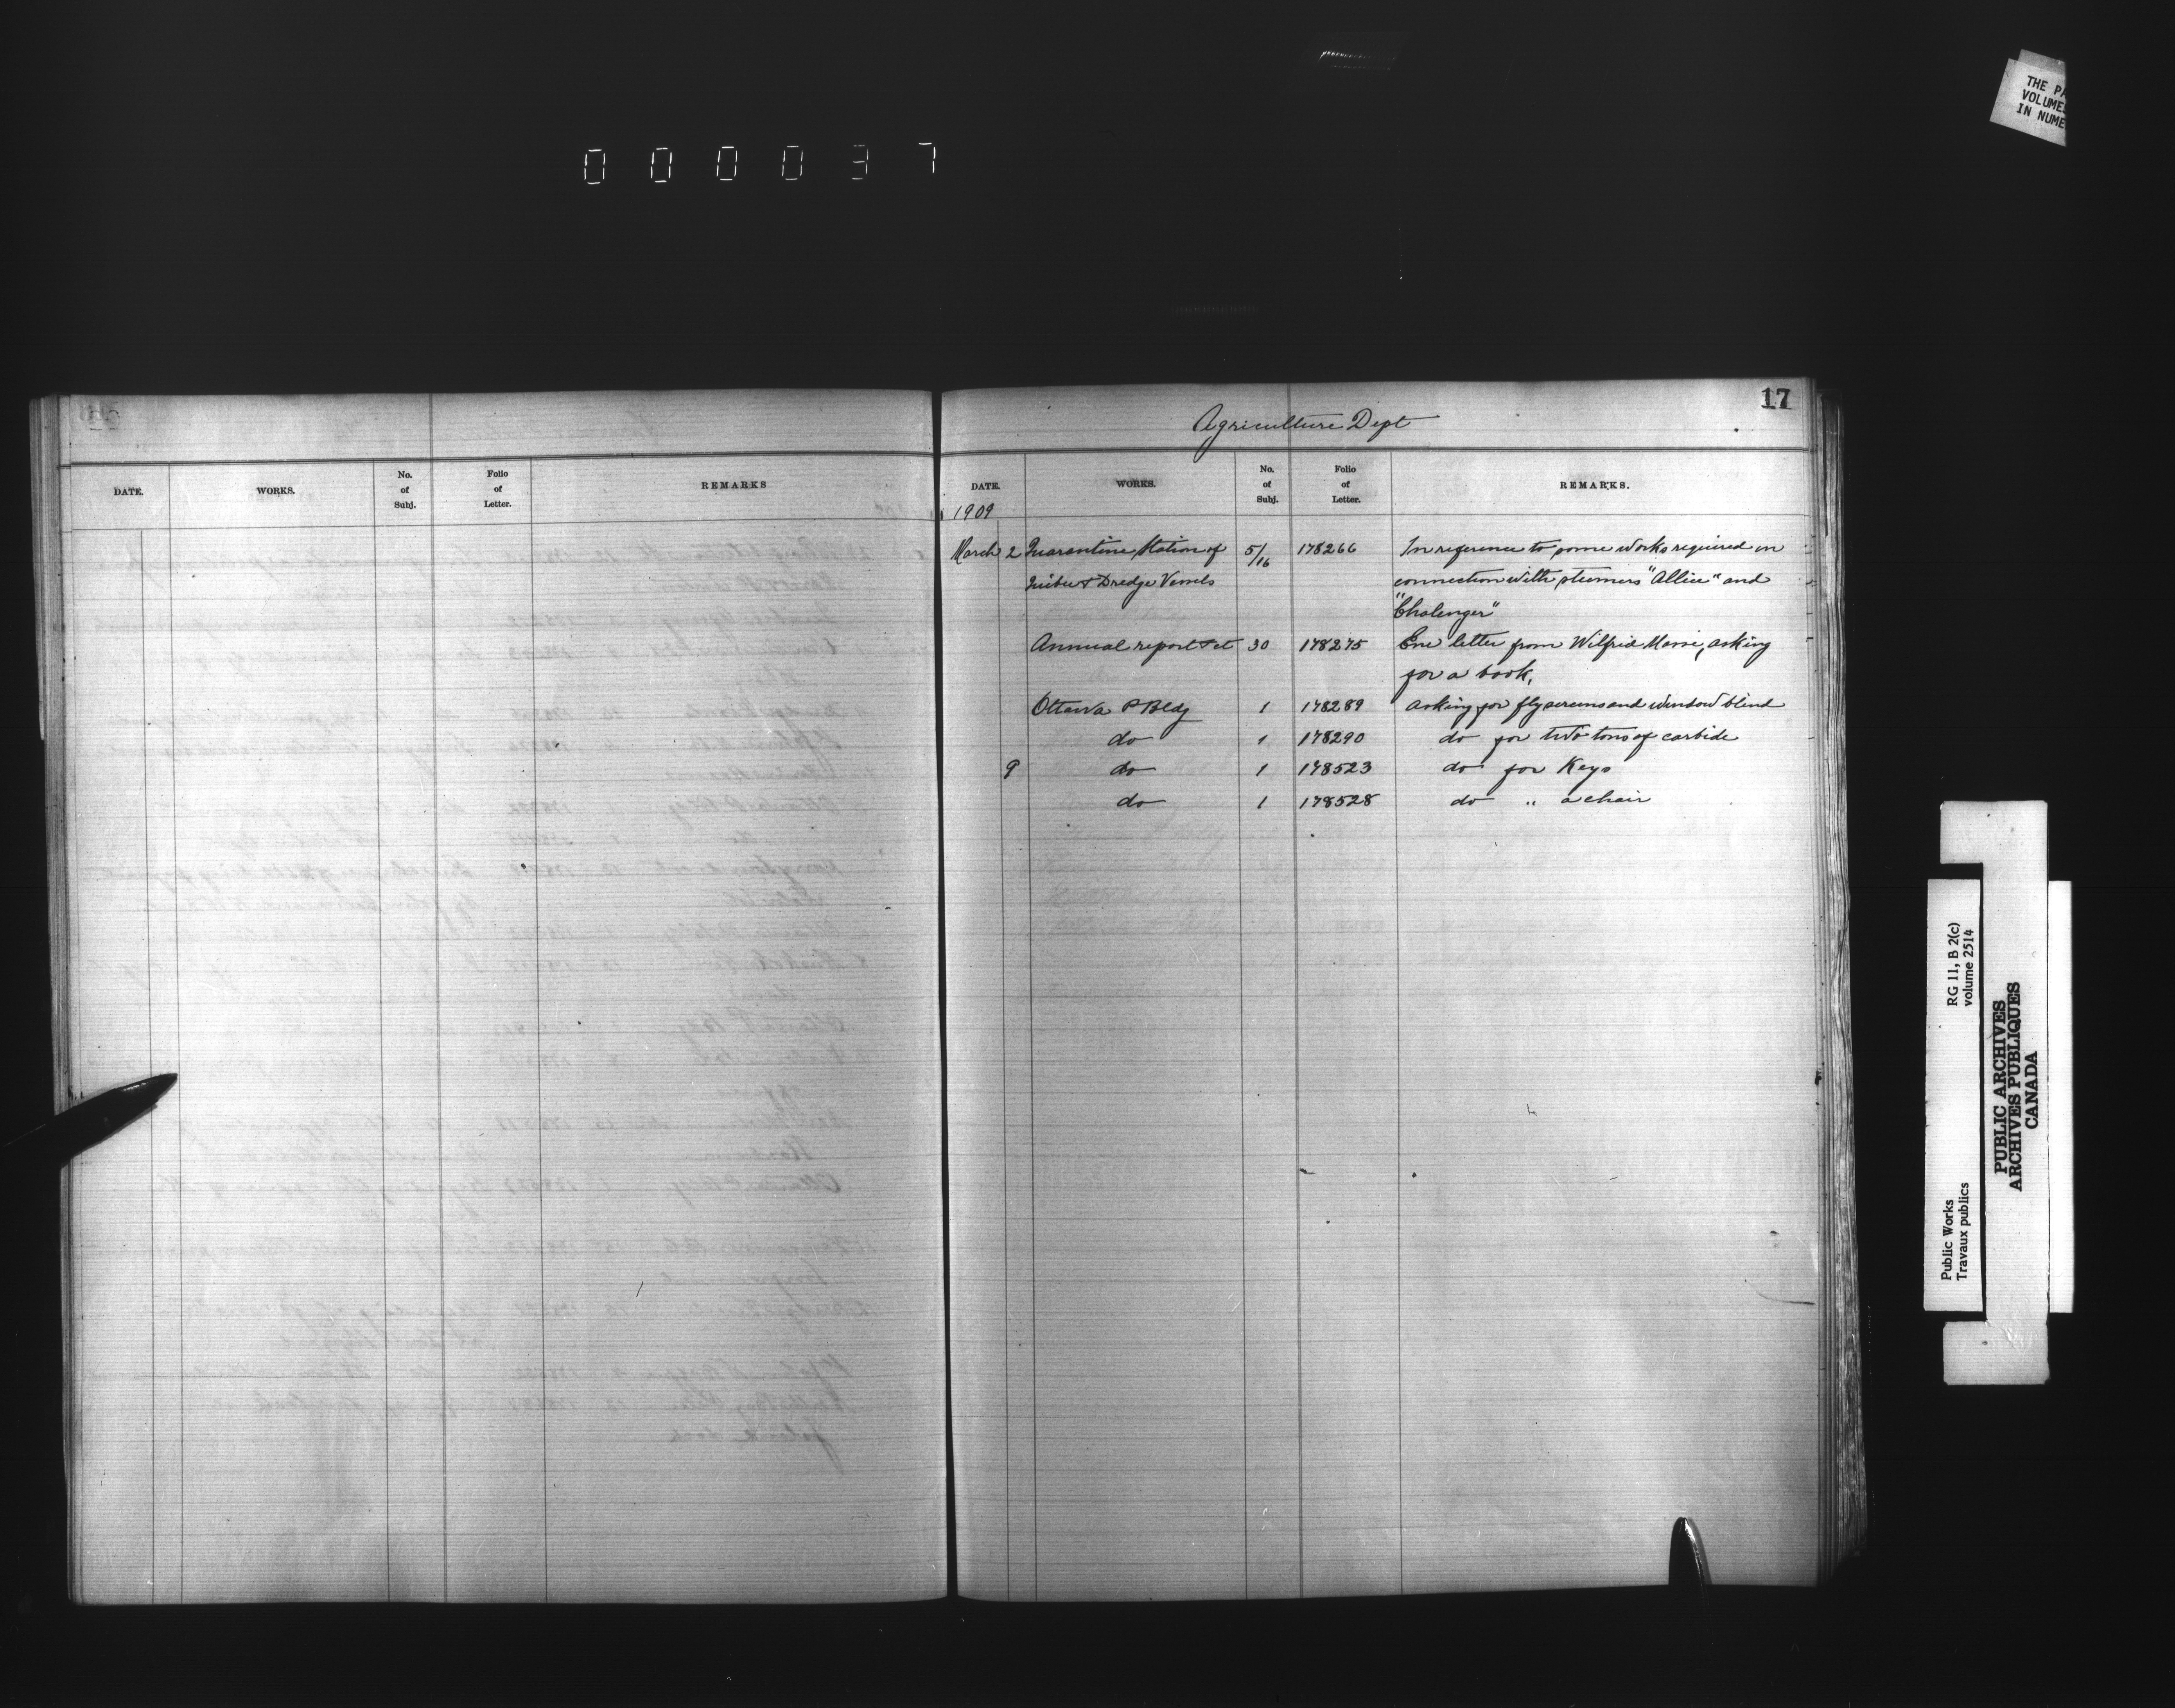 000037
THE PA
VOLUME
IN NUME
17
Agriculture Dept
DATE. WORKS. No. of Subj. Folio of Letter. REMARKS
DATE. WORKS. No. of Subj. Folio of Letter. REMARKS.
1909
March 2 Quarantine Station of 5/16 178266 In reference to some works required in
Quebec & Dredge Vessels connection with steamers "Allice" and
"Chalenger"
Annual report &ct 30 178275 Enc letter from Wilfrid asking
for a book,
Ottawa P Bldg 1 178289 asking for fly screens and window blind
do 1 178290 do for two tons of carbide
9 do 1 178523 do for Keys
do 1 178528 do " a chair
Public Works RG 11, B 2(c)
Travaux publics volume 2514
PUBLIC ARCHIVES
ARCHIVES PUBLIQUES
CANADA